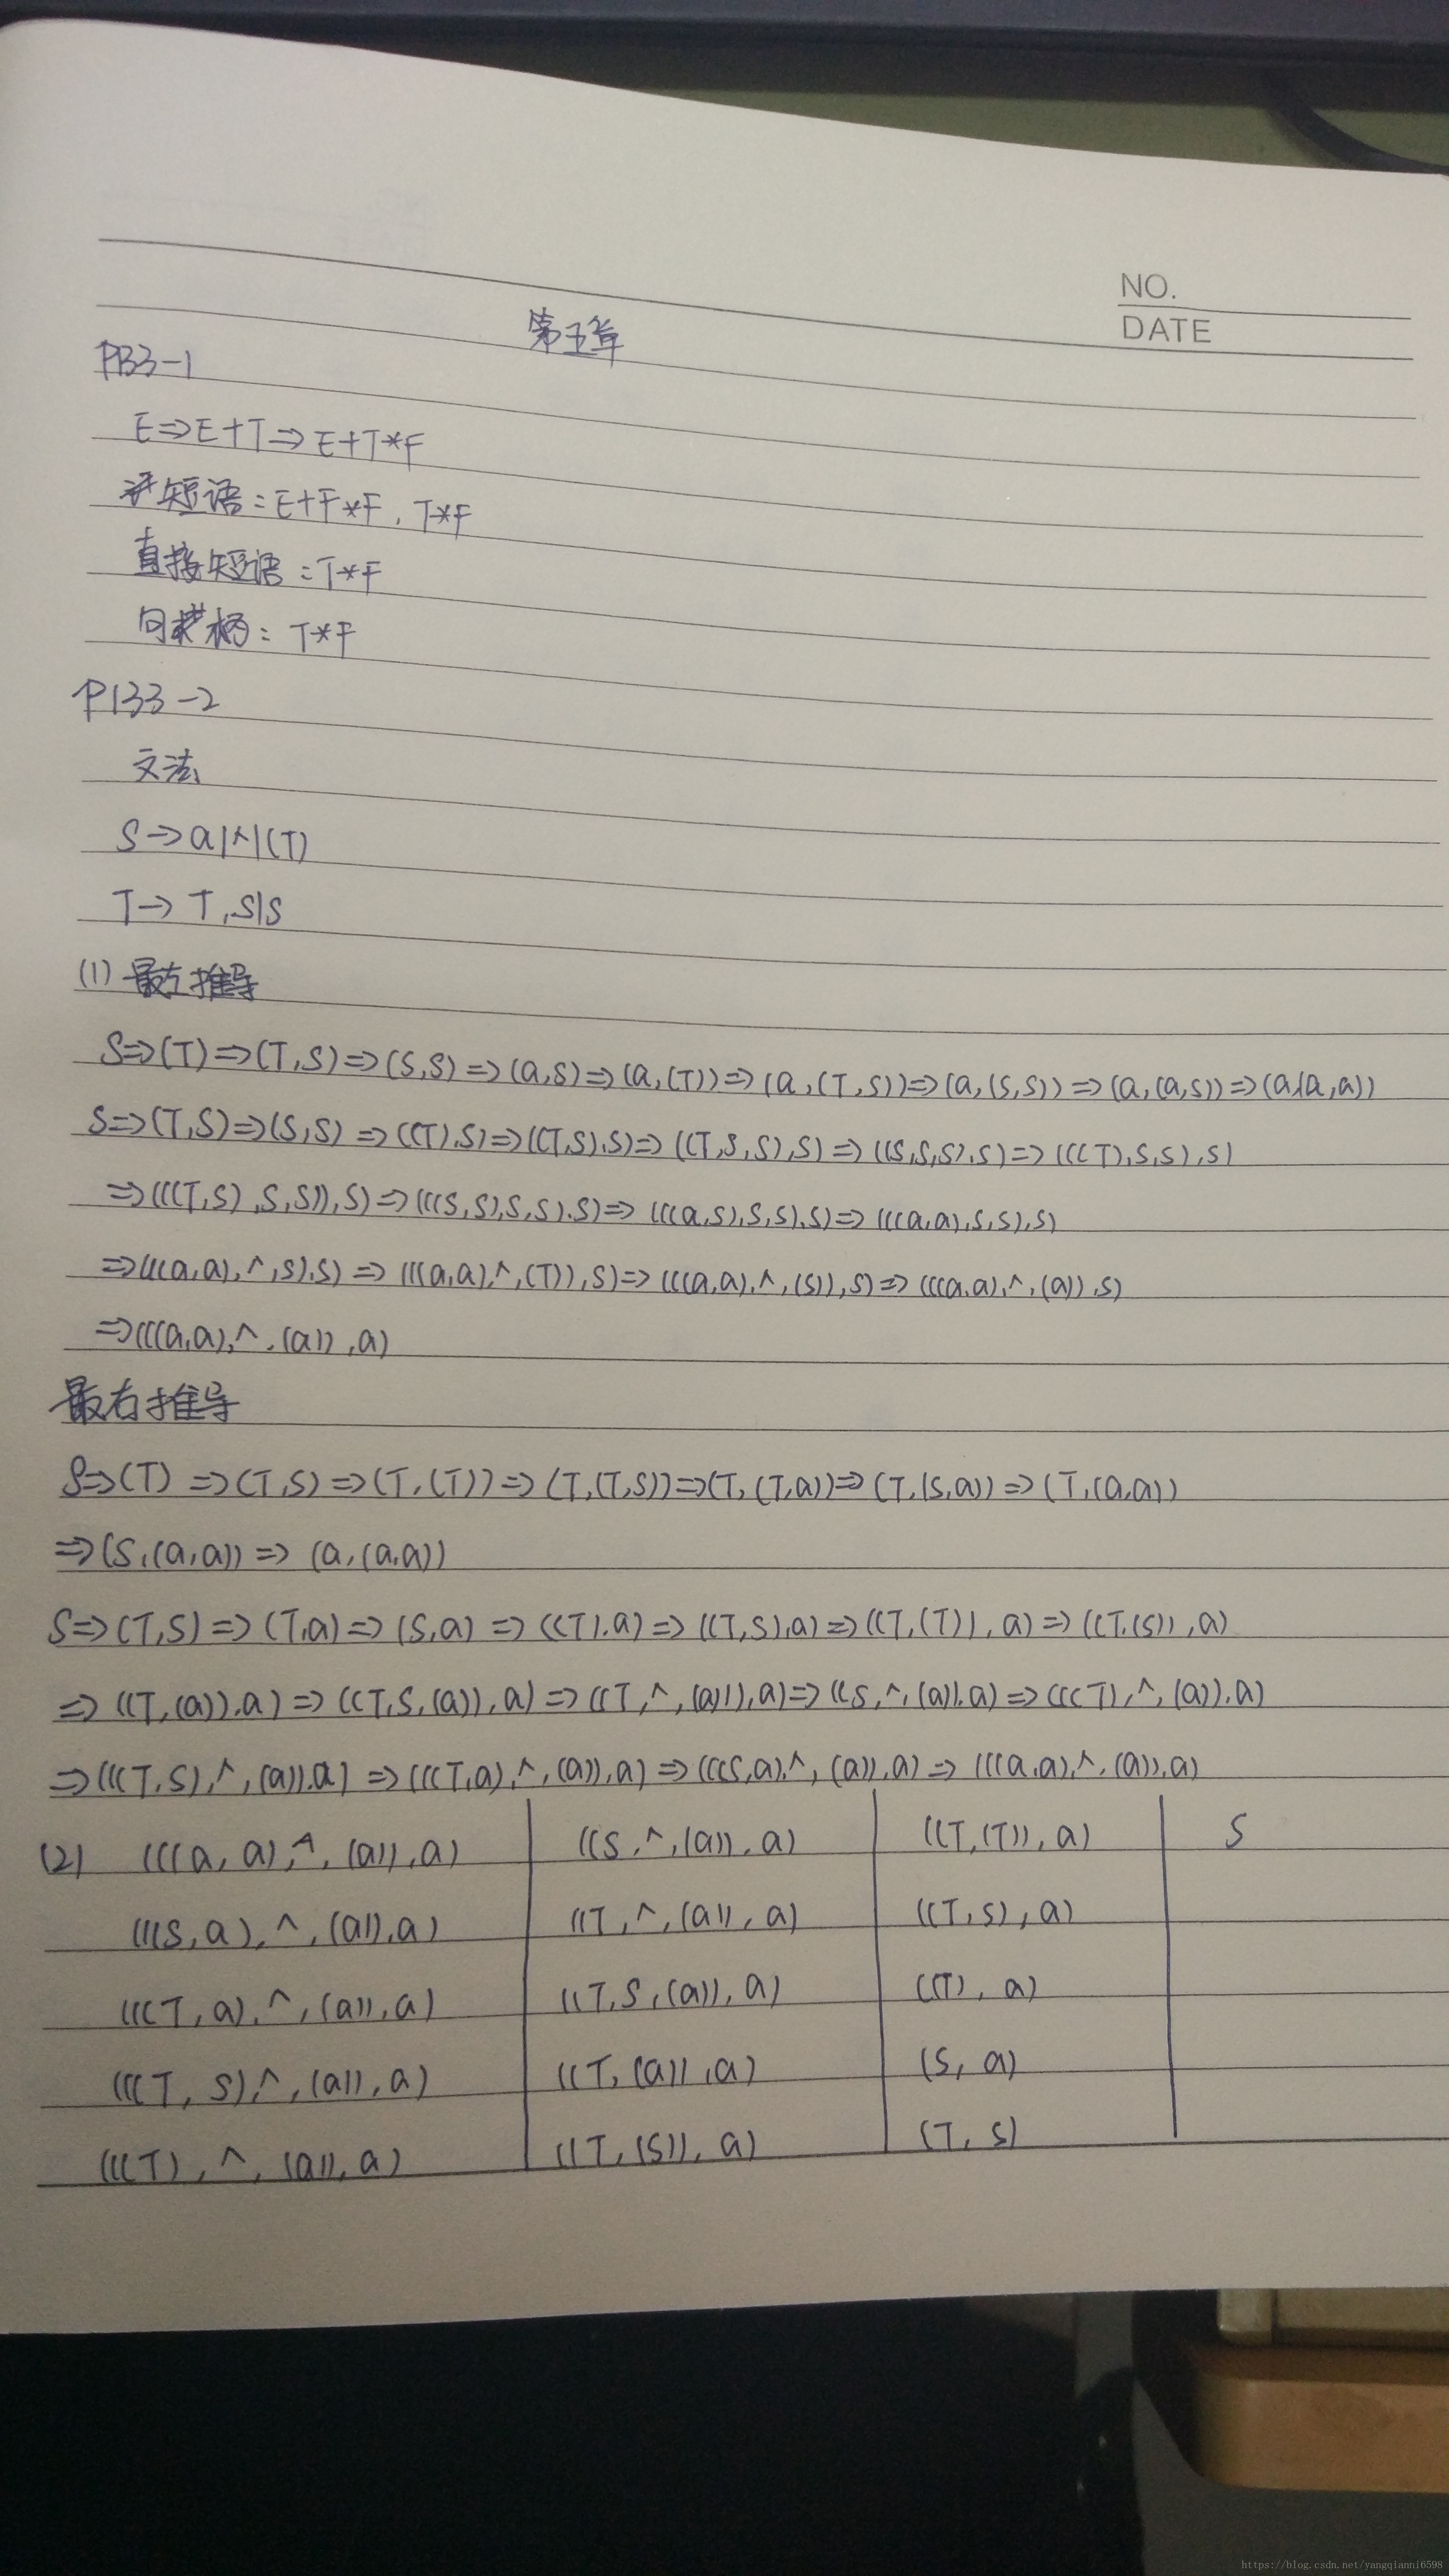 NO.
DATE
第五章
P133-1
E⇒E+T⇒E+T*F
短语:E+F*F,T*F
直接短语:T*F
句柄:T*F
P133-2
文法
S→a|^|(T)
T→T,S|S
(1)最左推导
S⇒(T)⇒(T,S)⇒(S,S)⇒(a,S)⇒(a,(T))⇒(a,(T,S))⇒(a,(S,S))⇒(a,(a,S))⇒(a,(a,a))
S⇒(T,S)⇒(S,S)⇒((T),S)⇒((T,S),S)⇒((T,S,S),S)⇒((S,S,S),S)⇒(((T),S,S),S)
⇒(((T,S),S,S)),S)⇒(((S,S),S,S),S)⇒(((a,S),S,S),S)⇒(((a,a),S,S),S)
⇒(((a,a),^,S),S)⇒(((a,a),^,(T)),S)⇒(((a,a),^,(S)),S)⇒(((a,a),^,(a)),S)
⇒(((a,a),^,(a)),a)
最右推导
S⇒(T)⇒(T,S)⇒(T,(T))⇒(T,(T,S))⇒(T,(T,a))⇒(T,(S,a))⇒(T,(a,a))
⇒(S,(a,a))⇒(a,(a,a))
S⇒(T,S)⇒(T,a)⇒(S,a)⇒((T),a)⇒((T,S),a)⇒((T,(T)),a)⇒((T,(S)),a)
⇒((T,(a)),a)⇒((T,S,(a)),a)⇒((T,^,(a)),a)⇒((S,^,(a)),a)⇒(((T),^,(a)),a)
⇒(((T,S),^,(a)),a)⇒(((T,a),^,(a)),a)⇒(((S,a),^,(a)),a)⇒(((a,a),^,(a)),a)
(2) (((a,a),^,(a)),a) ((S,^,(a)),a) ((T,(T)),a) S
(((S,a),^,(a)),a) ((T,^,(a)),a) ((T,S),a)
(((T,a),^,(a)),a) ((T,S,(a)),a) ((T),a)
(((T,S),^,(a)),a) ((T,(a)),a) (S,a)
(((T),^,(a)),a) ((T,(S)),a) (T,S)
https://blog.csdn.net/yangqianni6598